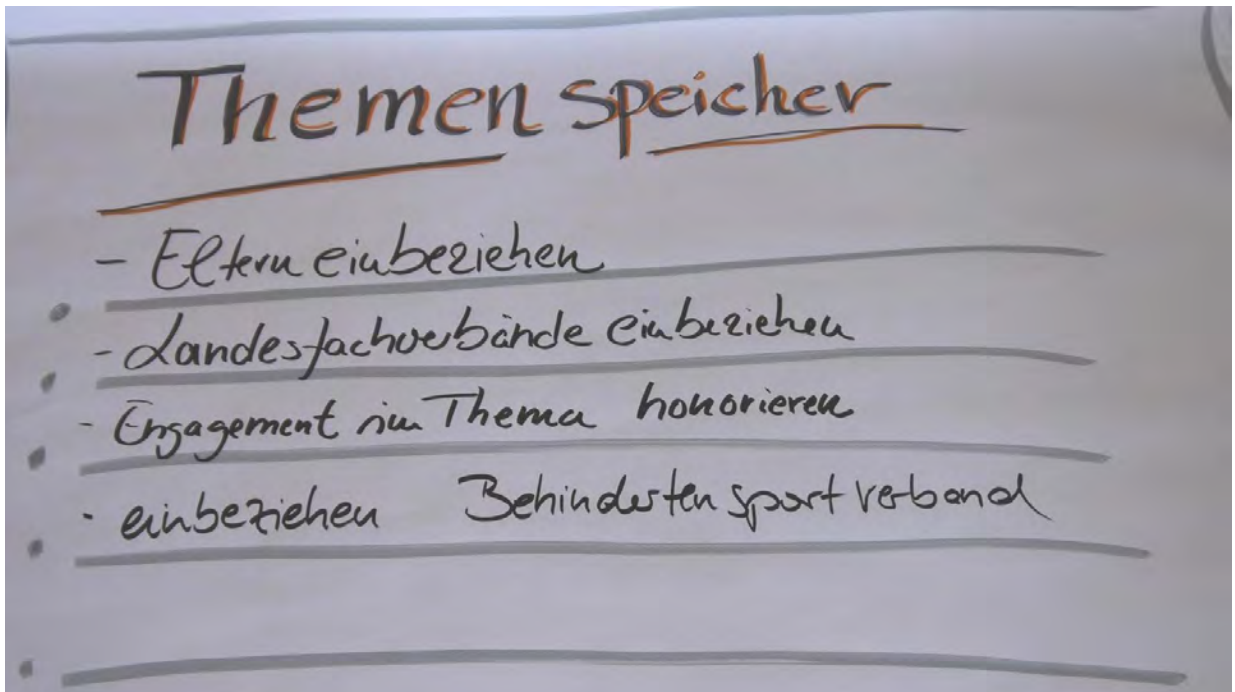 Themenspeicher
- Eltern einbeziehen
- Landesfachverbände einbeziehen
- Engagement im Thema honorieren
- einbeziehen Behindertensportverband